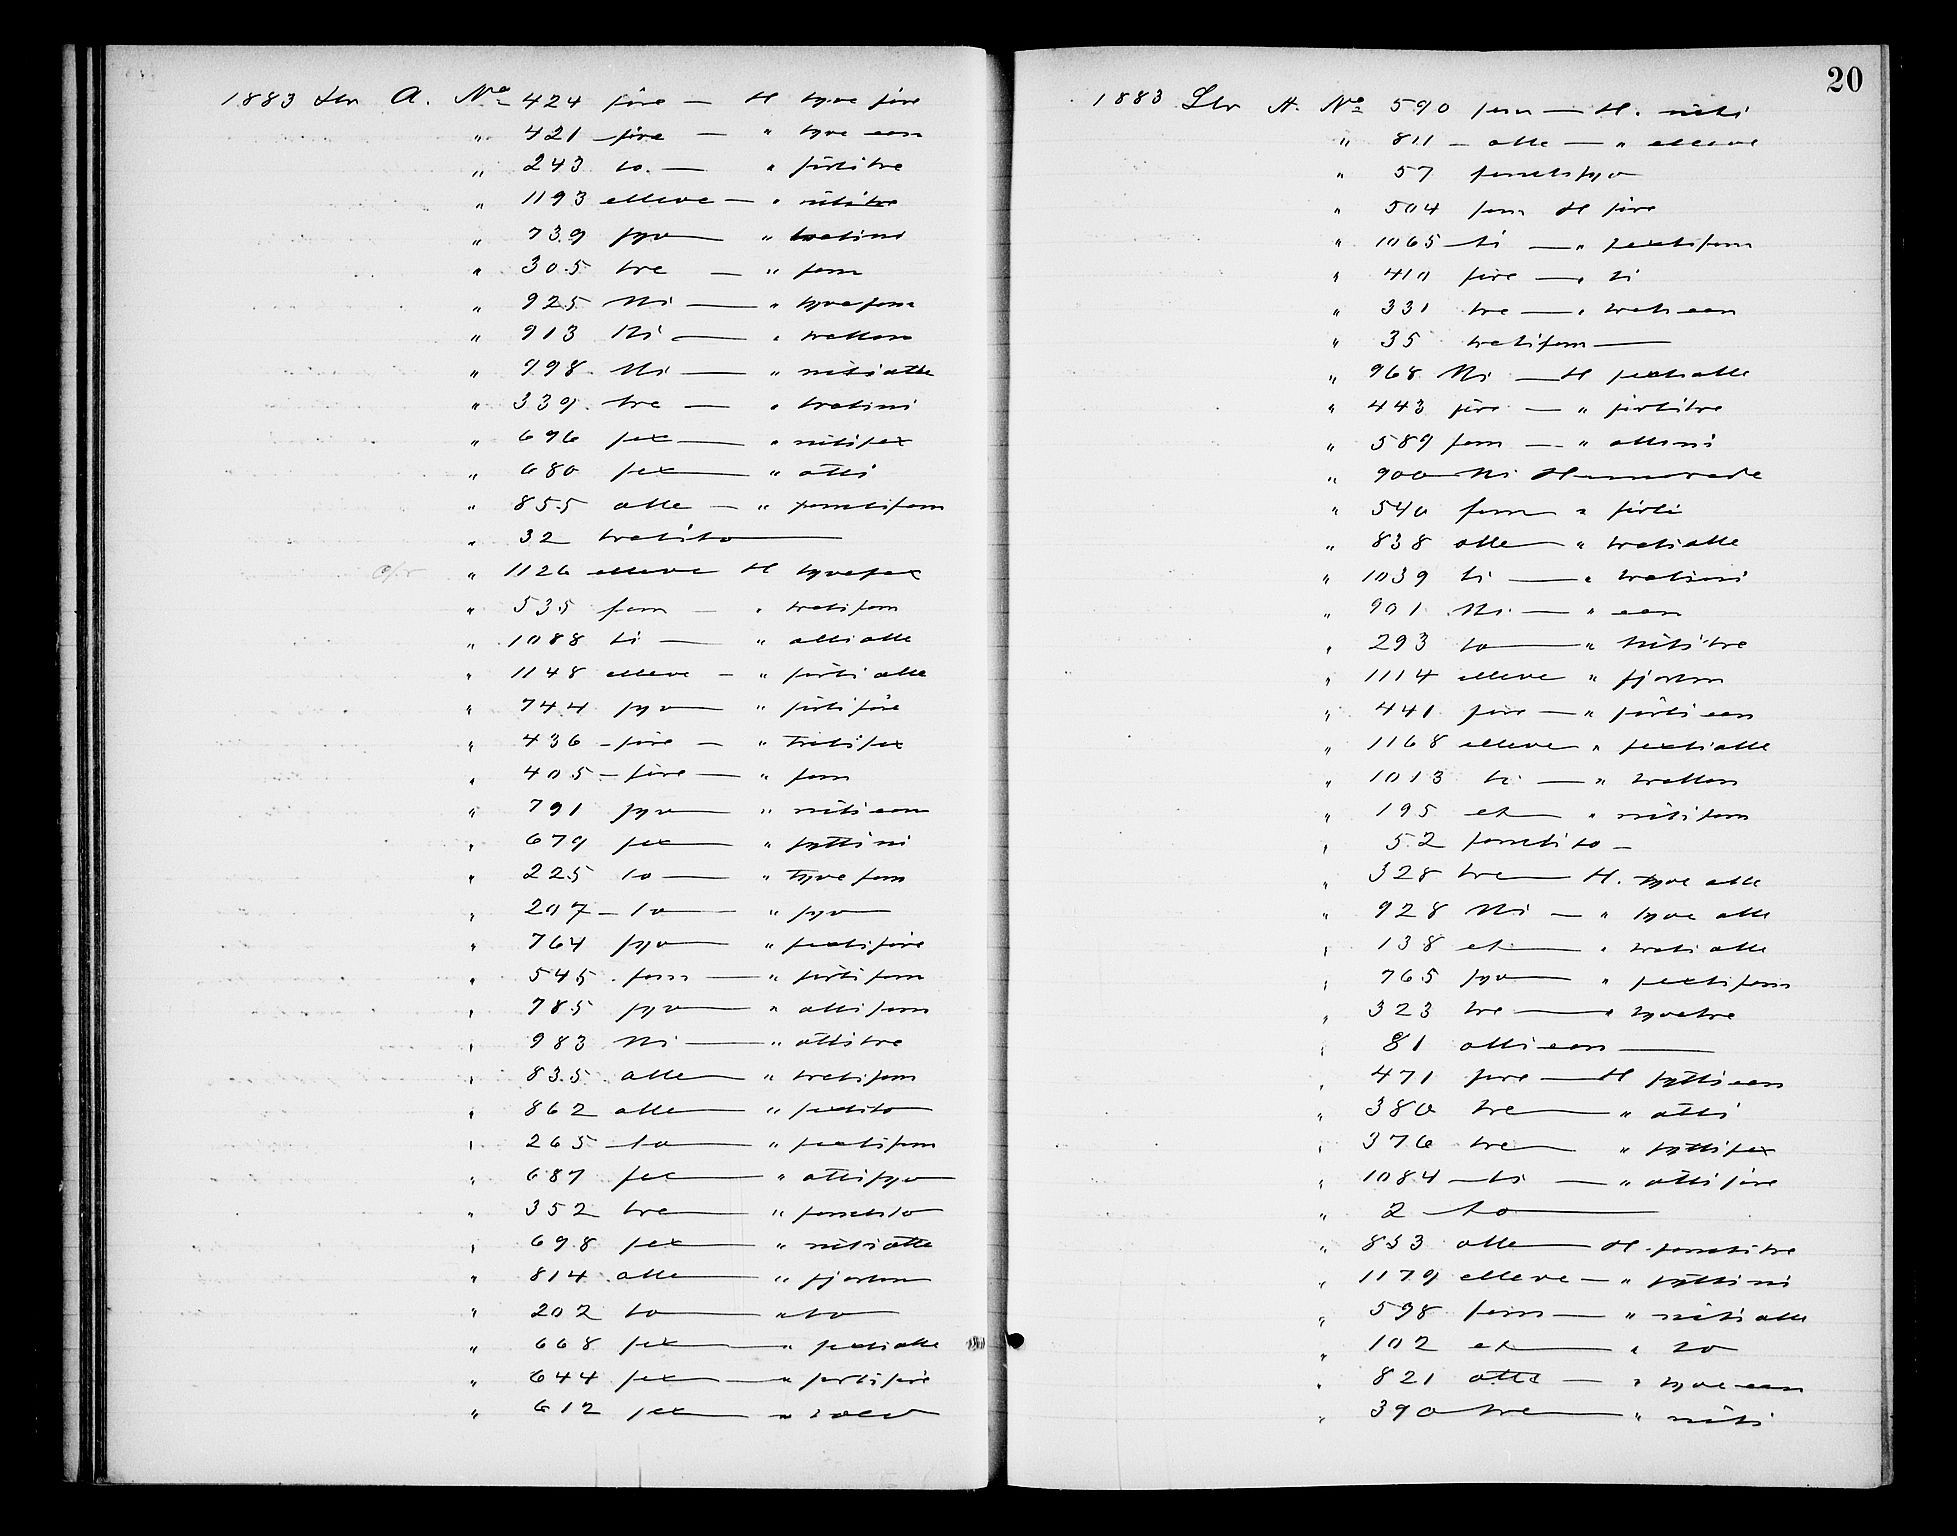 1883 Ltr A. No 424 fire — H tyve fire
" 421 fire — " tyve een
" 243 to. — " førtitre
" 1193 elleve — " nititre
" 739 syv — " tretini
" 305 tre — " fem
" 925 Ni — " tyvefem
" 913 Ni — " tretten
" 998 Ni — " nitiotte
" 339 tre — " tretini
" 696 sex — " nitisex
" 680 sex — " otti
" 855 otte — " femtifem
" 32 tretito —
" 1126 elleve H tyvesex
" 535 fem — " tretifem
" 1088 ti — " ottiotte
" 1148 elleve — " førtiotte
" 744 syv — " førtifire
" 436 fire — " tretisex
" 405 — fire — " fem
" 791 syv — " nitieen
" 679 sex — " syttini
" 225 to — " tyvefem
" 207 — to — " syv
" 764 syv — " sextifire
" 545 fem — " førtifem
" 785 syv — " ottifem
" 983 Ni — " ottitre
" 835 otte — " tretifem
" 862 otte — " sextito
" 265 to — " sextifem
" 687 sex — " ottisyv
" 352 tre — " femtito
" 698 sex — " nitiotte
" 814 otte — " fjorten
" 202 to — " to
" 668 sex — " sextiotte
" 644 sex — " førtifire
" 612 sex — " tolv
20
1883 Ltr A. No 590 fem — H. niti
" 811 — otte — " elleve
" 57 femtisyv
" 504 fem H fire
" 1065 ti — " sextifem
" 410 fire — " ti
" 331 tre — " tretieen
" 35 tretifem —
" 968 Ni — H sextiotte
" 443 fire — " førtitre
" 589 fem — " ottini
" 900 Ni Hunnrede
" 540 fem " førti
" 838 otte — " tretiotte
" 1039 ti — " tretini
" 901 Ni — " een
" 293 to — " nititre
" 1114 elleve " fjorten
" 441 fire — " førtieen
" 1168 elleve " sextiotte
" 1013 ti — " tretten
" 195 et — " nitifem
" 52 femtito —
" 328 tre — H. tyve otte
" 928 Ni — " tyve otte
" 138 et — " tretiotte
" 765 syv — " sextifem
" 323 tre — " tyvetre
" 81 ottieen —
" 471 fire — H syttieen
" 380 tre — " otti
" 376 tre — " syttisex
" 1084 — ti — " ottifire
" 2 to —
" 853 otte — H femtitre
" 1179 elleve — " syttini
" 598 fem — " nitiotte
" 102 et — " to
" 821 otte — " tyveeen
" 390 tre — " niti